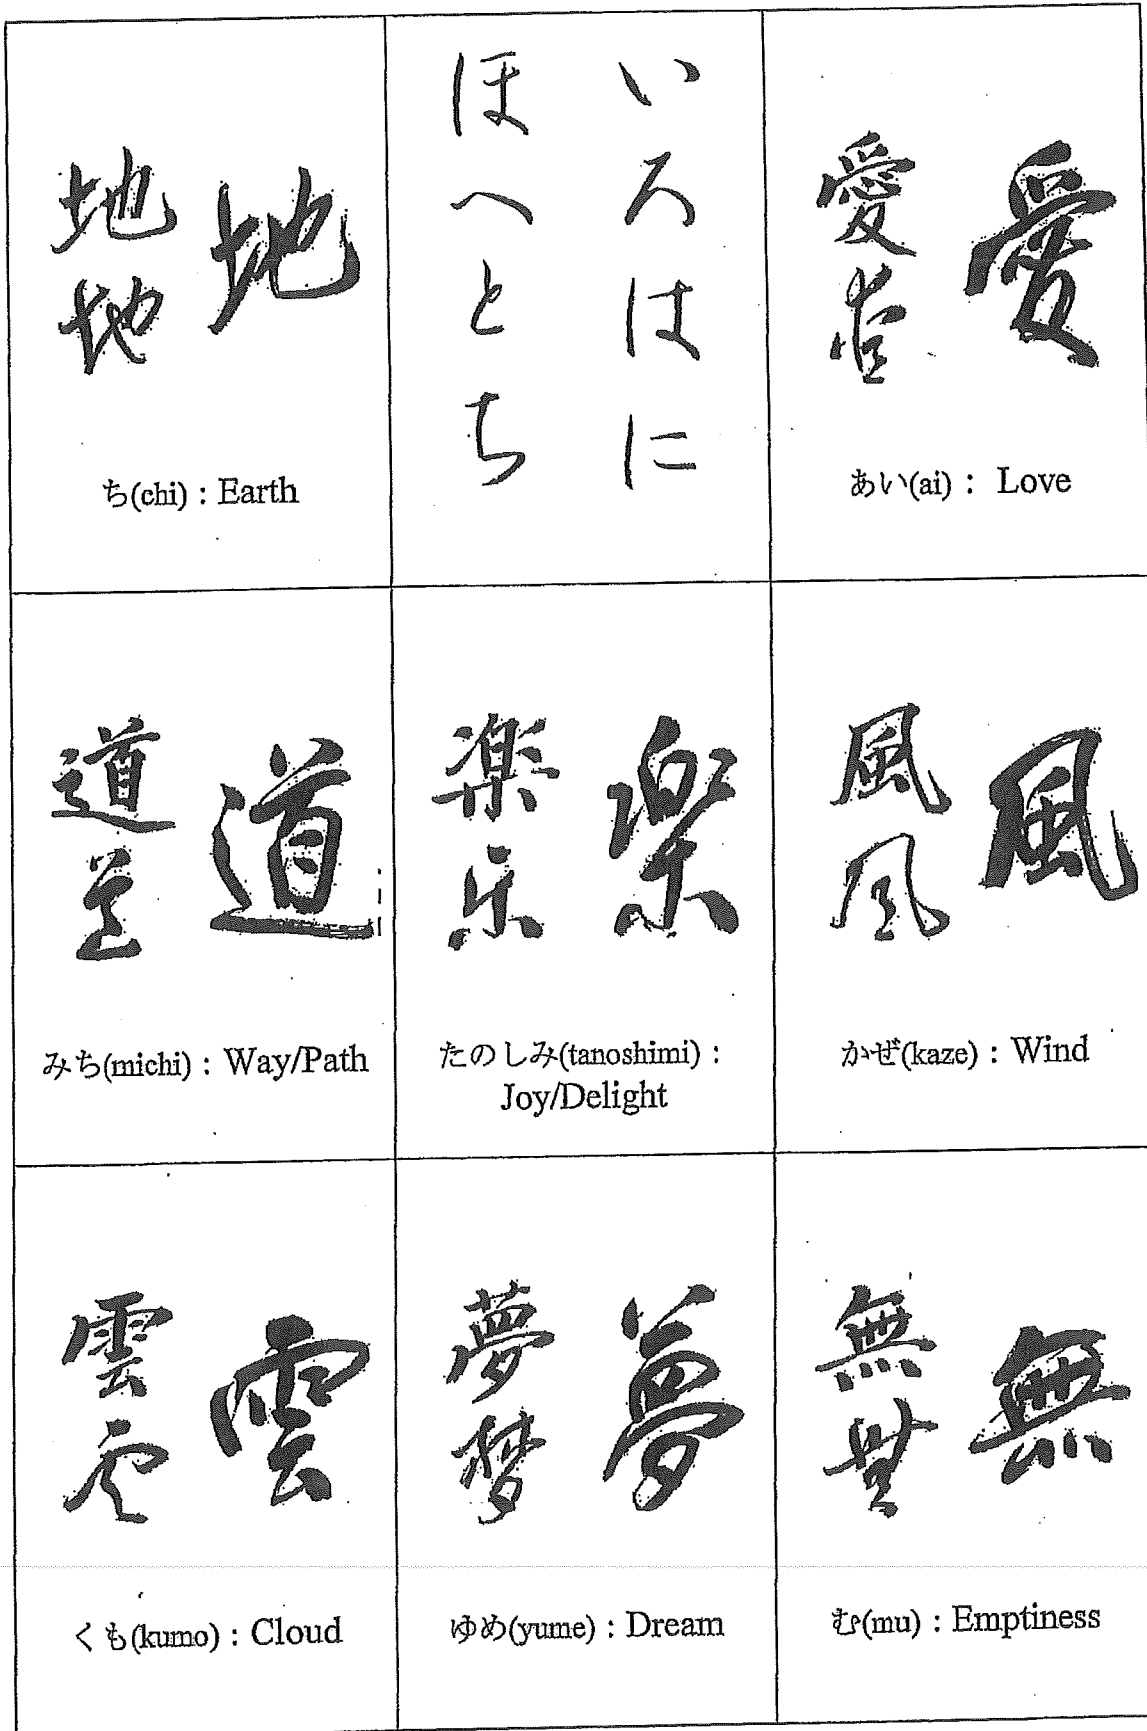 地
地地
ち(chi) : Earth
いろはに
ほへとち
愛
愛愛
あい(ai) : Love
道
道道
みち(michi) : Way/Path
楽
楽楽
たのしみ(tanoshimi) :
Joy/Delight
風
風風
かぜ(kaze) : Wind
雲
雲雲
くも(kumo) : Cloud
夢
夢梦
ゆめ(yume) : Dream
無
無無
む(mu) : Emptiness